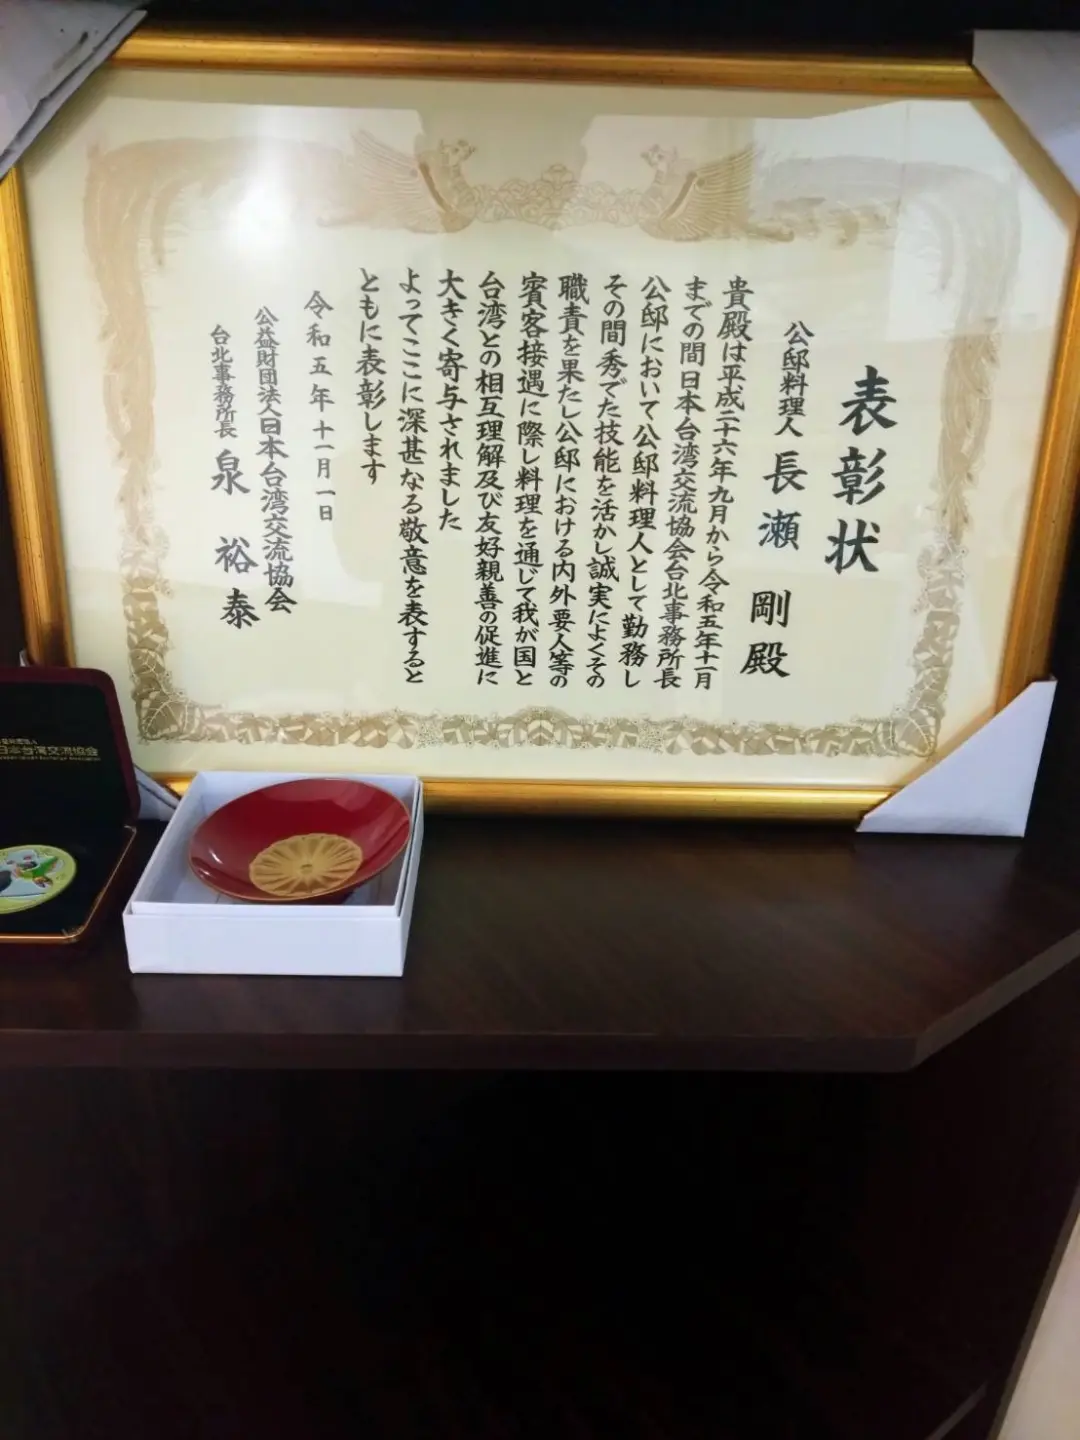 表彰状
公邸料理人 長瀬 剛 殿
貴殿は平成二十六年九月から令和五年十一月
までの間日本台湾交流協会台北事務所長
公邸において公邸料理人として勤務し
その間秀でた技能を活かし誠実によくその
職責を果たし公邸における内外要人等の
賓客接遇に際し料理を通じて我が国と
台湾との相互理解及び友好親善の促進に
大きく寄与されました
よってここに深甚なる敬意を表すると
ともに表彰します
令和五年十一月一日
公益財団法人日本台湾交流協会
台北事務所長 泉 裕泰
日本台湾交流協会